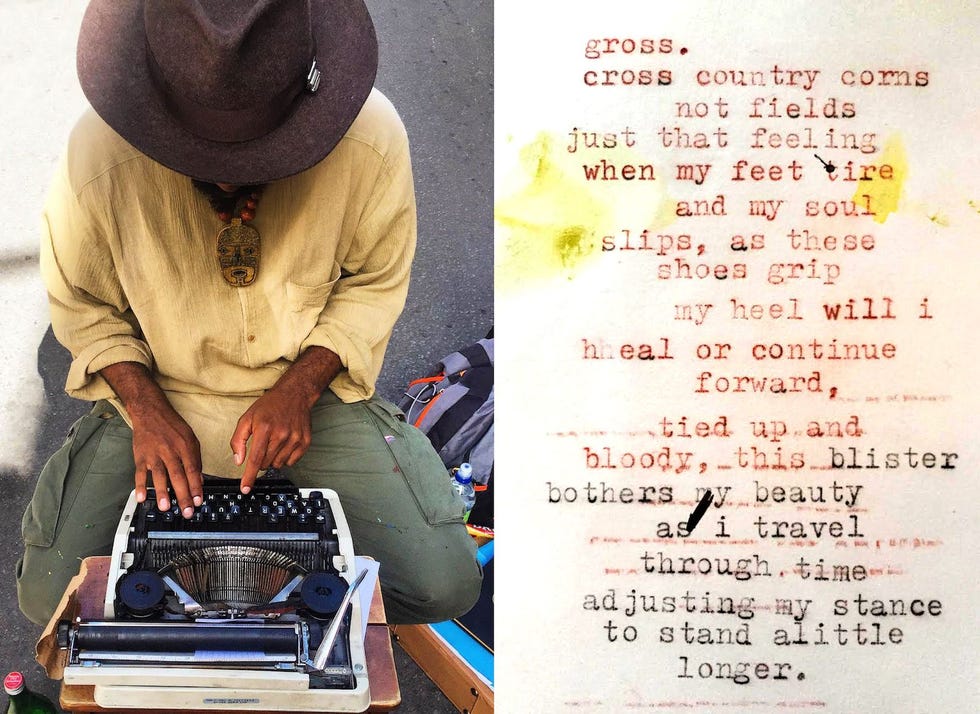 gross.
cross country corns
not fields
just that feeling
when my feet tire
and my soul
slips, as these
shoes grip
my heel will i
hheal or continue
forward,
tied up and
bloody, this blister
bothers my beauty
as i travel
through time
adjusting my stance
to stand alittle
longer.